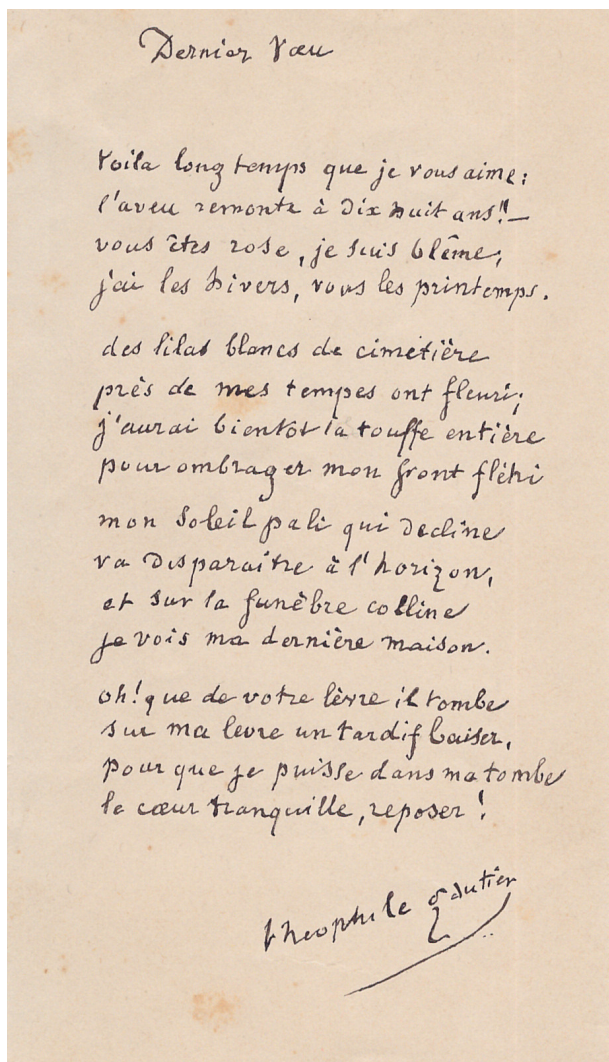 Dernier Vœu
Voila long temps que je vous aime:
l'aveu remonte à dix huit ans!!—
vous êtes rose, je suis blême,
j'ai les hivers, vous les printemps.
des lilas blancs de cimetière
près de mes tempes ont fleuri;
j'aurai bientôt la touffe entière
pour ombrager mon front flétri
mon soleil pali qui decline
va disparaitre à l'horizon,
et sur la funèbre colline
je vois ma dernière maison.
oh! que de votre lèvre il tombe
sur ma levre un tardif baiser,
pour que je puisse dans ma tombe
le cœur tranquille, reposer!
theophile gautier